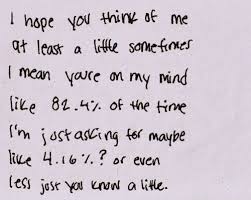 I hope you think of me
at least a little sometimes
I mean you're on my mind
like 82.4% of the time
I'm just asking for maybe
like 4.16%? or even
less just you know a little.